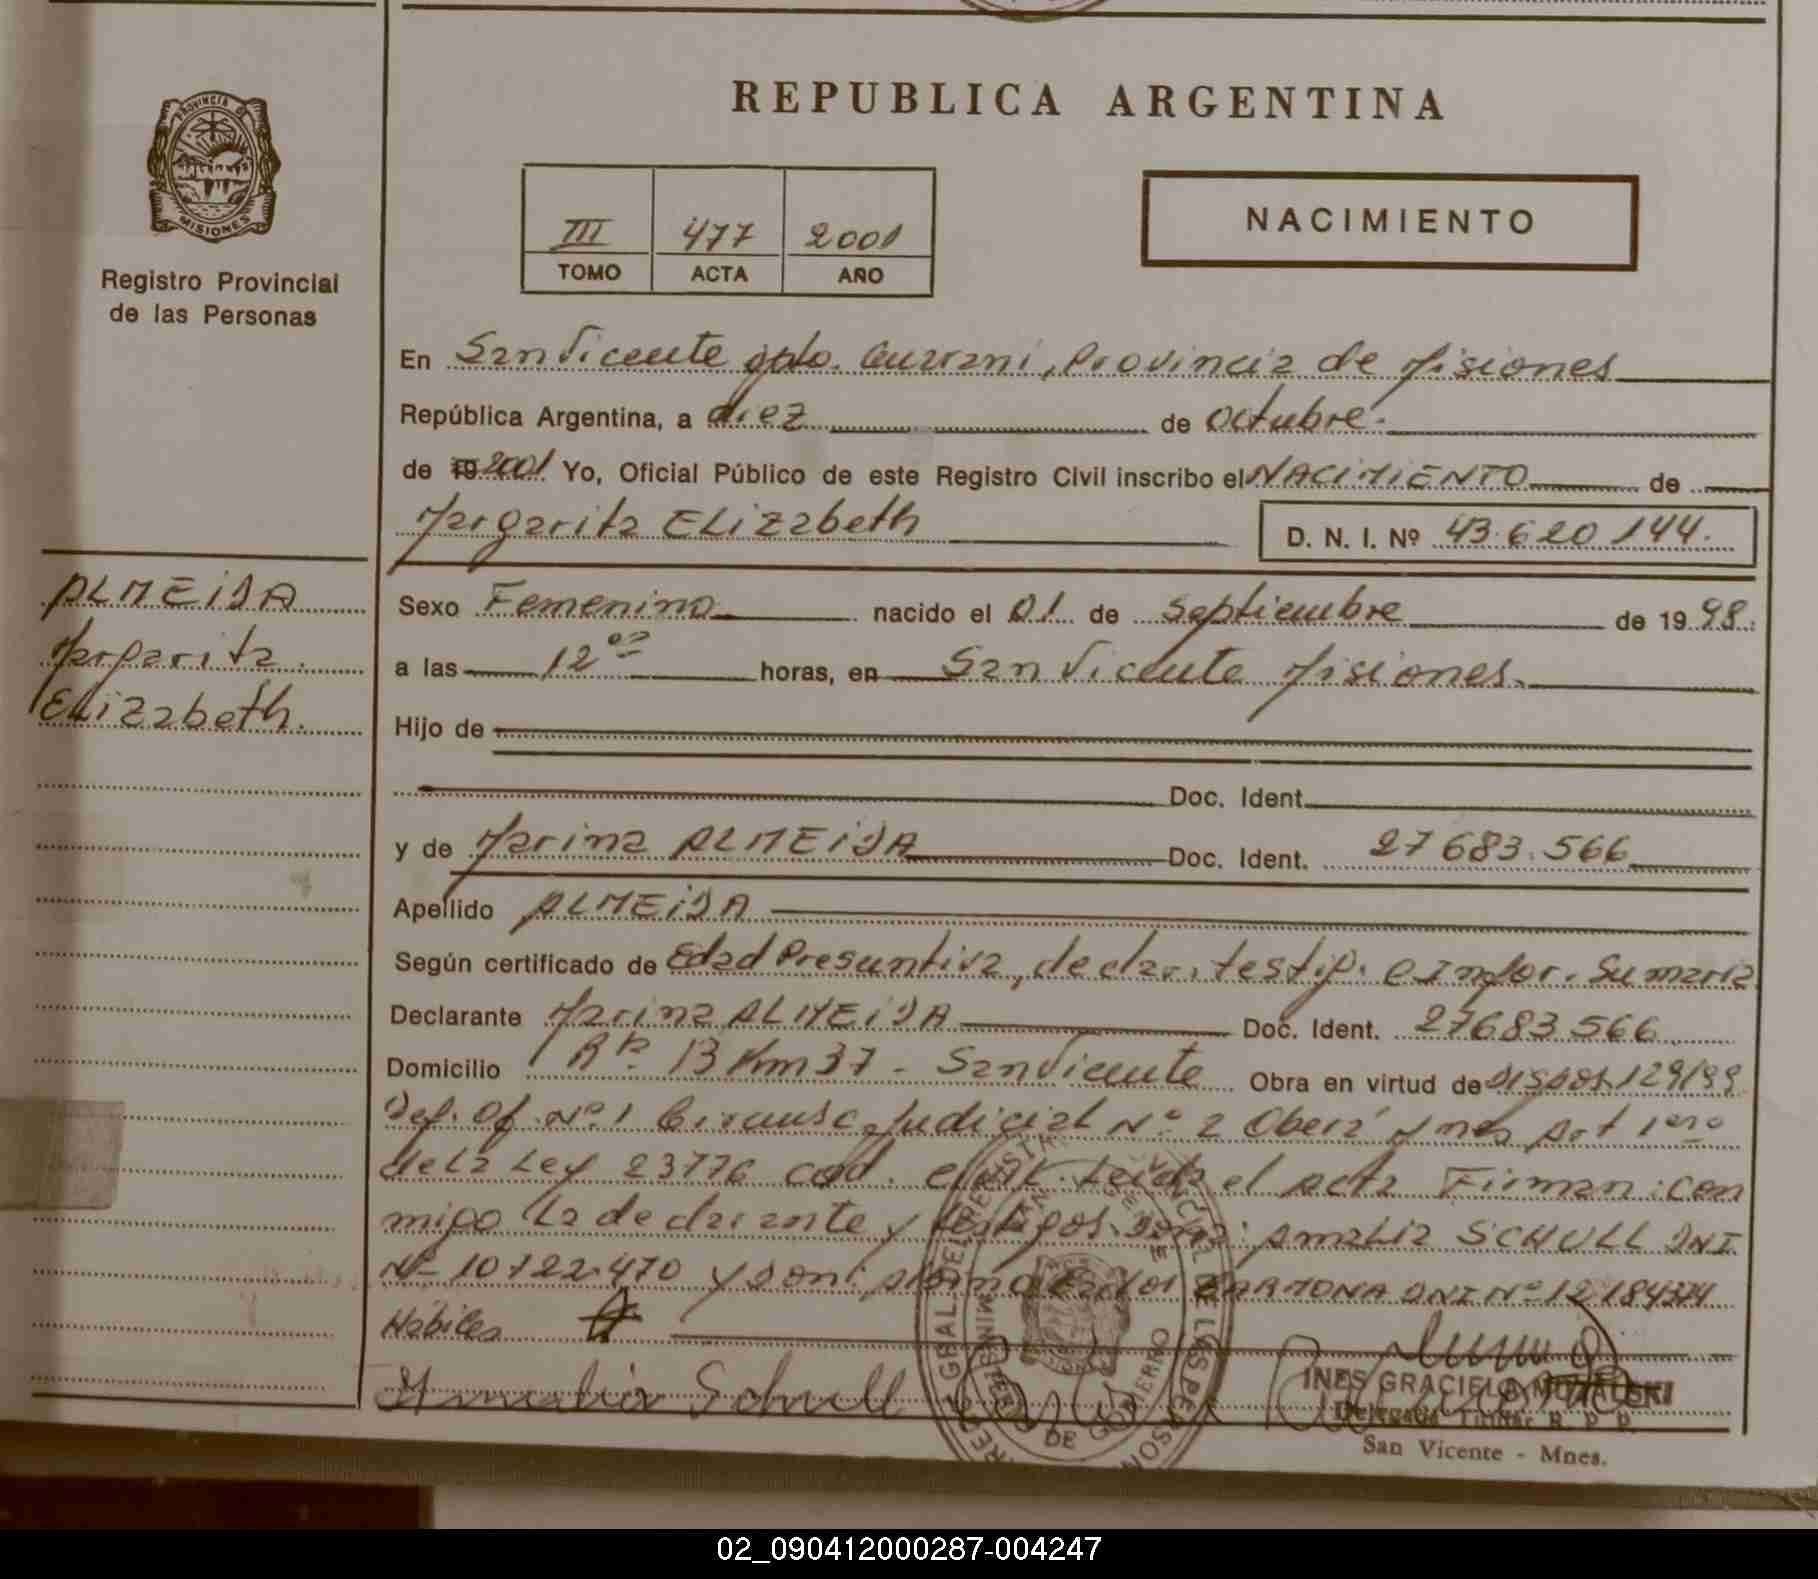 REPUBLICA ARGENTINA
PROVINCIA D
MISIONES
Registro Provincial
de las Personas
III 477 2001
TOMO ACTA AÑO
NACIMIENTO
En San Vicente Dpto. Guarani, Provincia de Misiones
República Argentina, a diez de octubre.
de 19 2001 Yo, Oficial Público de este Registro Civil inscribo el NACIMIENTO de
Margarita ELizabeth
D. N. I. Nº 43.620 144.
ALMEIDA
Margarita
ELizabeth.
Sexo Femenino nacido el 01 de septiembre de 19 98.
a las 12 oo horas, en San Vicente Misiones.
Hijo de
Doc. Ident.
y de Marina ALMEIDA Doc. Ident. 27 683.566
Apellido ALMEIDA
Según certificado de Edad Presuntiva, declar. testig. e Infor. Sumaria
Declarante Marina ALMEIDA Doc. Ident. 27683.566
Domicilio 13 Km 37 - San Vicente Obra en virtud de Dispos. 129/99
Def. Of. Nº 1 Circunsc. Judicial Nº 2 Oberá Mnes Art 1ero
de La Ley 23776 Leida el acta Firman: con
migo La declarante y testigos. Amalia SCHULL DNI
Nº 10722.470 y Don: CARMONA DNI Nº 12 184374
Habiles
Amalia Schull
INES GRACIELA
Delegada Titular R. P. P.
San Vicente - Mnes.
02_090412000287-004247